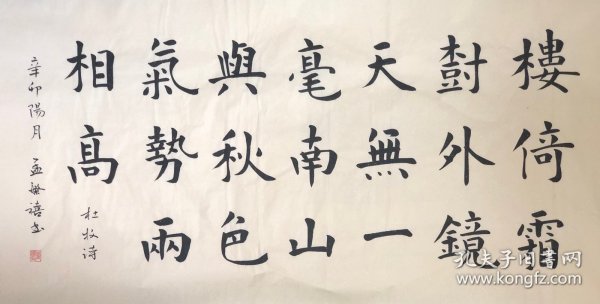 樓倚霜
樹外鏡
天無一
毫南山
與秋色
氣勢兩
相高
杜牧詩
辛卯陽月 孟繁禧书
孔夫子旧书网
www.kongfz.com